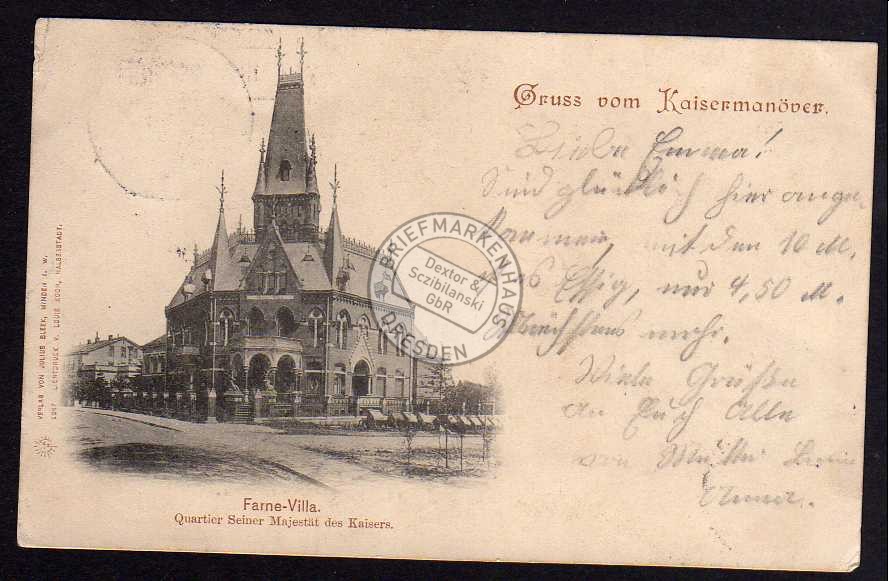 Gruss vom Kaisermanöver.
Liebe Emma!
Sind glücklich hier ange-
kommen, mit den 10 M.
Essig, nur 4,50 M.
mehr.
Viele Grüße
an Euch Alle
von
Anna.
BRIEFMARKENHAUS
Dextor &
Sczibilanski
GbR
DRESDEN
VERLAG VON JULIUS BLEEK, MINDEN I. W.
LICHTDRUCK V. LOUIS KOCH, HALBERSTADT.
Farne-Villa.
Quartier Seiner Majestät des Kaisers.